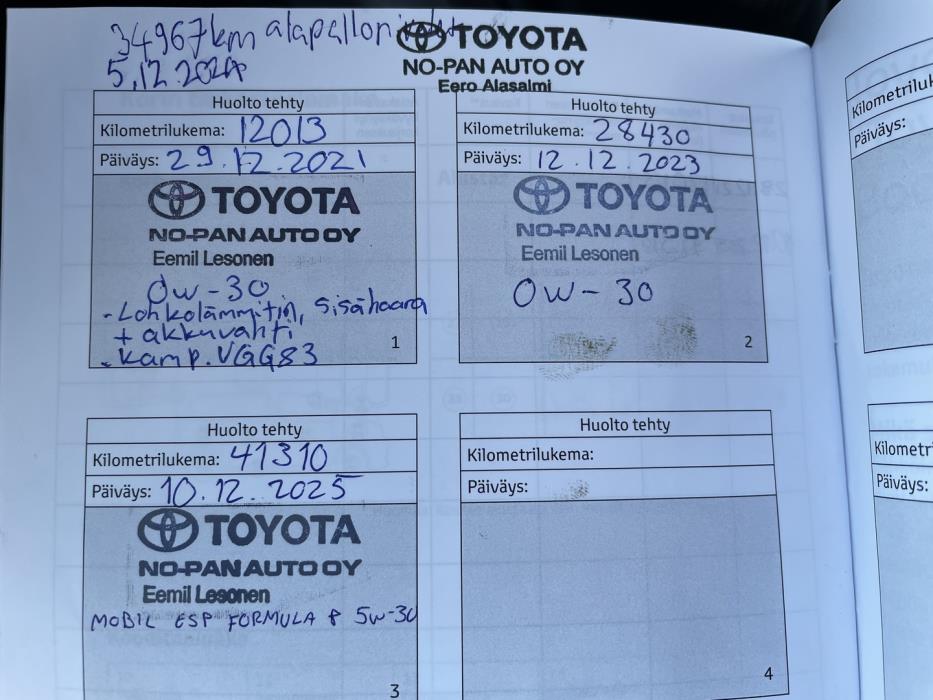 34967km alapallonivelet
TOYOTA
5.12.2024
NO-PAN AUTO OY
Eero Alasalmi
Huolto tehty
Kilometrilukema: 12013
Päiväys: 29.12.2021
TOYOTA
NO-PAN AUTO OY
Eemil Lesonen
0w-30
- Lohkolämmitin, sisähaara
+ akkuvahti
- kamp. VGG83
1
Huolto tehty
Kilometrilukema: 28430
Päiväys: 12.12.2023
TOYOTA
NO-PAN AUTO OY
Eemil Lesonen
0W-30
2
Huolto tehty
Kilometrilukema: 41310
Päiväys: 10.12.2025
TOYOTA
NO-PAN AUTO OY
Eemil Lesonen
MOBIL ESP FORMULA P 5W-30
3
Huolto tehty
Kilometrilukema:
Päiväys:
4
Kilometriluk
Päiväys:
Kilometr
Päiväys: